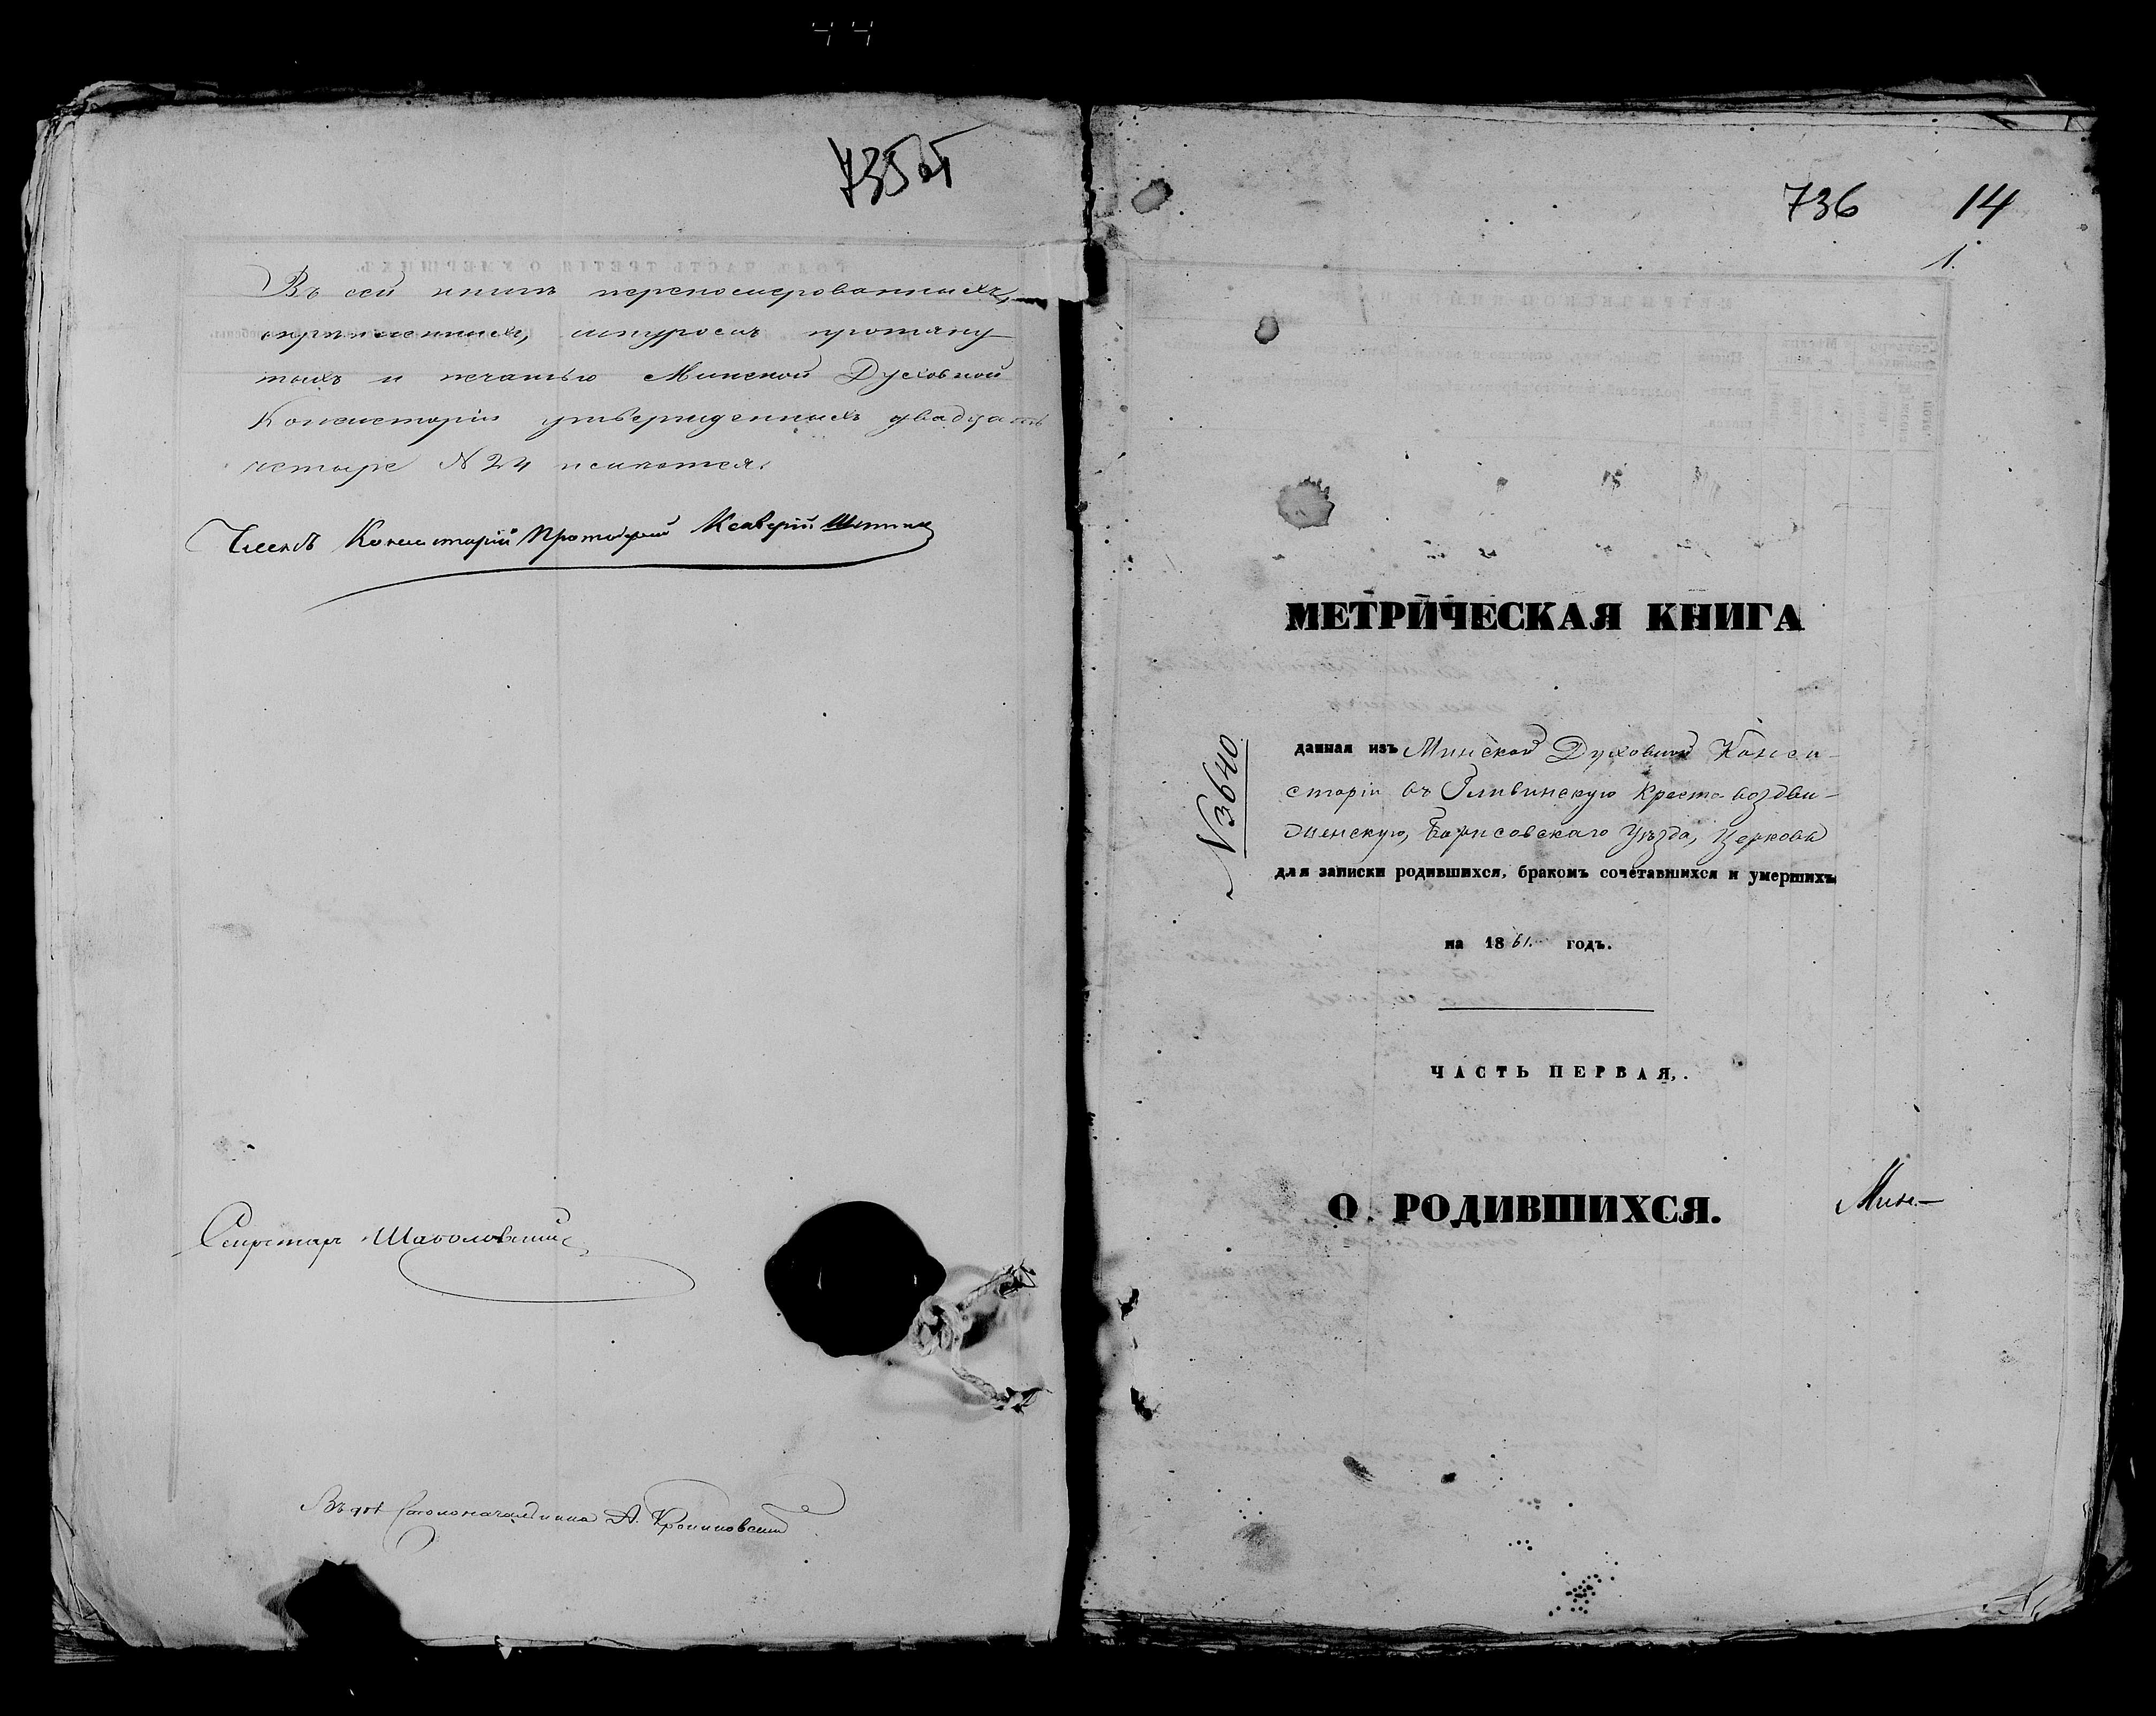 44
735об
Въ сей книгѣ перенумерованныхъ,
скрѣпленныхъ, шнуромъ протяну-
тыхъ и печатью Минской Духовной
Консисторіи утвержденныхъ двадцать
четыре N 24 полулистовъ
Членъ Консисторіи Протоіерей Ксаверій
Секретарь
Столоначальника А.
736 14
1.
МЕТРИЧЕСКАЯ КНИГА
N 3640
данная изъ Минской Духовной Конси-
сторіи въ Гливинскую Кресто-воздви-
женскую, Борисовскаго Уѣзда, Церковь
для записки родившихся, бракомъ сочетавшихся и умершихъ
на 1861. годъ.
ЧАСТЬ ПЕРВАЯ,.
О РОДИВШИХСЯ.
Мин-